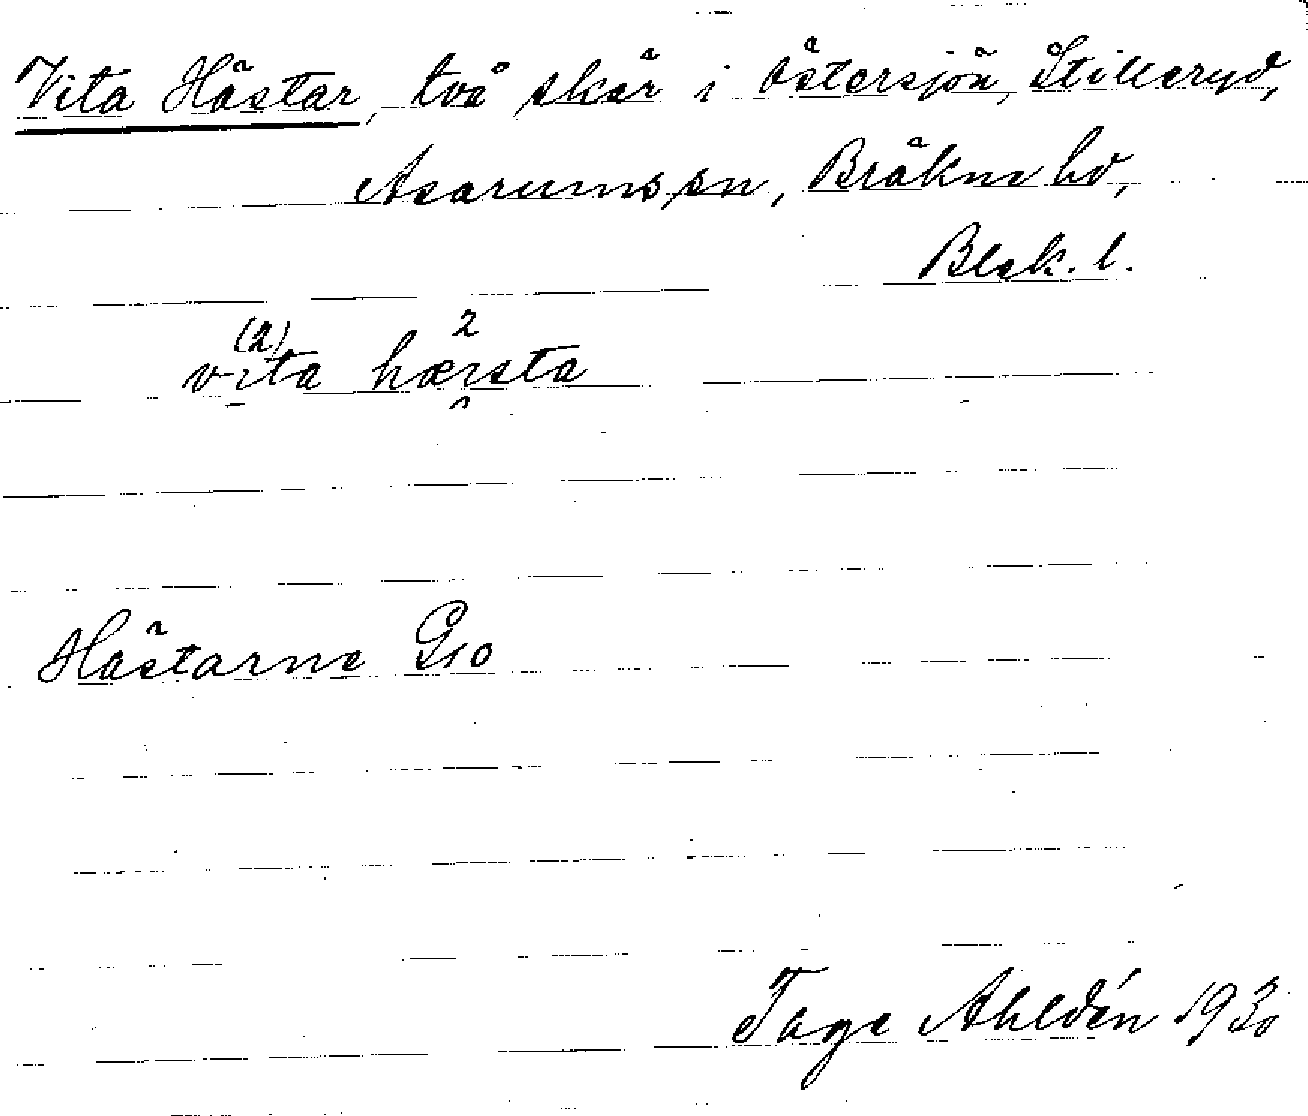 Vita Hästar, två skär i Östersjön, Stilleryd,
Asarums sn, Bräkne hd,
Blek. l.
vita hærsta
Hästarne G10
Tage Ahldén 1930